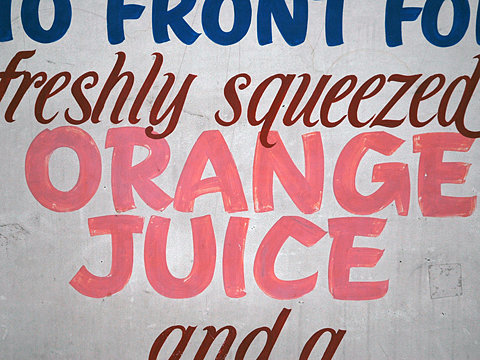 TO FRONT FOR
freshly squeezed
ORANGE
JUICE
and a